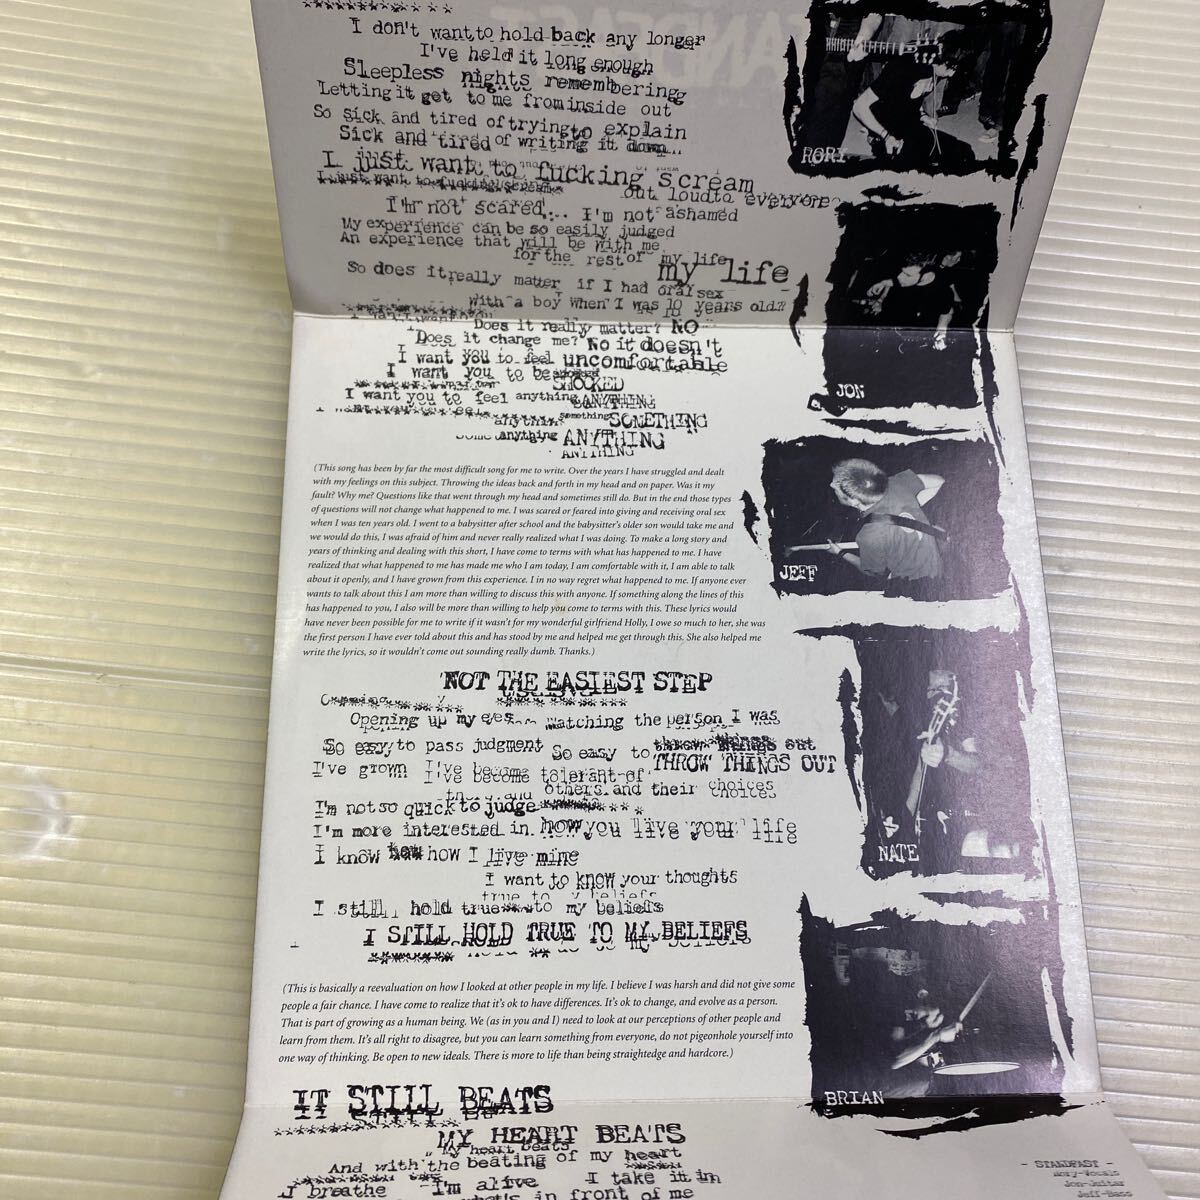 I don't want to hold back any longer
I've held it long enough
Sleepless nights remembering
Letting it get to me from inside out
So sick and tired of trying to explain
Sick and tired of writing it down...
I just want to fucking scream
out loud to everyone
I'm not scared... I'm not ashamed
My experience can be so easily judged
An experience that will be with me
for the rest of my life
my life
So does it really matter if I had oral sex
With a boy When I was 10 years old?
Does it really matter? NO
Does it change me? No it doesn't
I want you to feel uncomfortable
I want you to be SHOCKED
I want you to feel anything ANYTHING
anything something SOMETHING
anything ANYTHING
(This song has been by far the most difficult song for me to write. Over the years I have struggled and dealt
with my feelings on this subject. Throwing the ideas back and forth in my head and on paper. Was it my
fault? Why me? Questions like that went through my head and sometimes still do. But in the end those types
of questions will not change what happened to me. I was scared or feared into giving and receiving oral sex
when I was ten years old. I went to a babysitter after school and the babysitter's older son would take me and
we would do this, I was afraid of him and never really realized what I was doing. To make a long story and
years of thinking and dealing with this short, I have come to terms with what has happened to me. I have
realized that what happened to me has made me who I am today, I am comfortable with it, I am able to talk
about it openly, and I have grown from this experience. I in no way regret what happened to me. If anyone ever
wants to talk about this I am more than willing to discuss this with anyone. If something along the lines of this
has happened to you, I also will be more than willing to help you come to terms with this. These lyrics would
have never been possible for me to write if it wasn't for my wonderful girlfriend Holly, I owe so much to her, she was
the first person I have ever told about this and has stood by me and helped me get through this. She also helped me
write the lyrics, so it wouldn't come out sounding really dumb. Thanks.)
NOT THE EASIEST STEP
Opening up my eyes watching the person I was
So easy to pass judgment So easy to throw things out
THROW THINGS OUT
I've grown I've become tolerant of
others and their choices
I'm not so quick to judge
I'm more interested in how you live your life
I know how I live mine
I want to know your thoughts
I still hold true to my beliefs
I STILL HOLD TRUE TO MY BELIEFS
(This is basically a reevaluation on how I looked at other people in my life. I believe I was harsh and did not give some
people a fair chance. I have come to realize that it's ok to have differences. It's ok to change, and evolve as a person.
That is part of growing as a human being. We (as in you and I) need to look at our perceptions of other people and
learn from them. It's all right to disagree, but you can learn something from everyone, do not pigeonhole yourself into
one way of thinking. Be open to new ideals. There is more to life than being straightedge and hardcore.)
IT STILL BEATS
MY HEART BEATS
And with the beating of my heart
I breathe I'm alive I take it in
what's in front of me
RORY
JON
JEFF
NATE
BRIAN
- STANDFAST -
Rory-Vocals
Jon-Guitar
Jeff-Bass